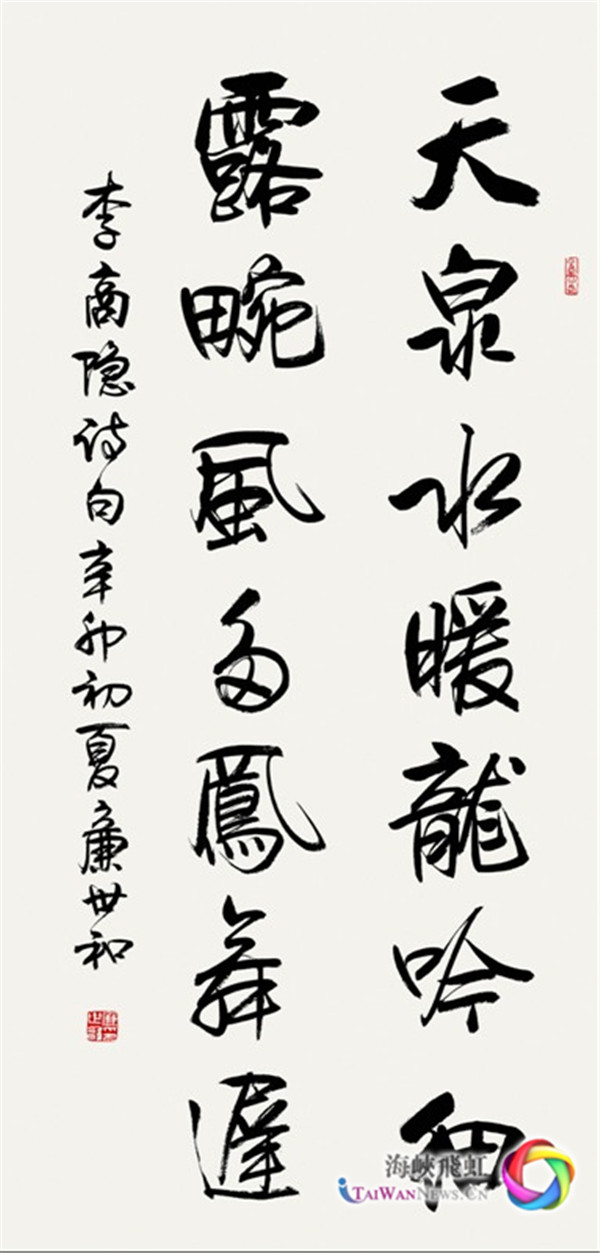 天泉水暖龍吟細
露畹風多鳳舞遲
李商隐诗句辛卯初夏廉世和
海峽飛虹
iTAIWANNEWS.CN